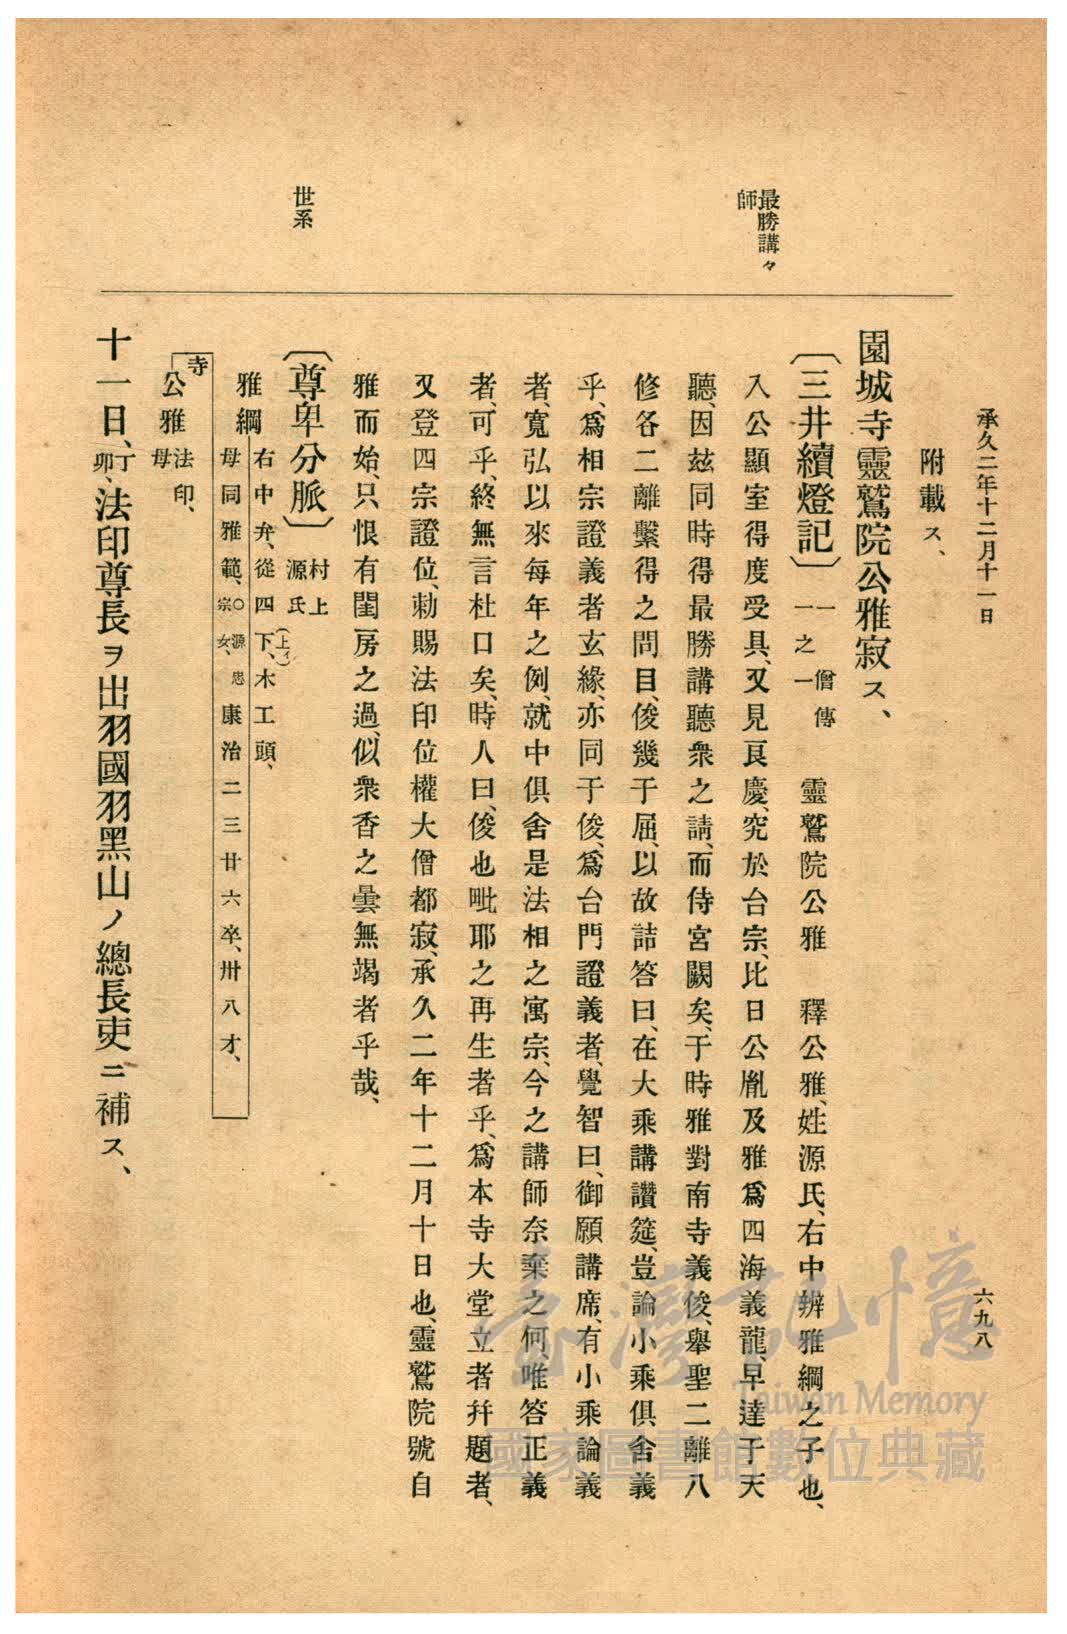 承久二年十二月十一日
六九八
最勝講々
師
世系
附載ス、
園城寺靈鷲院公雅寂ス、
〔三井續燈記〕一之一 僧傳 靈鷲院公雅 釋公雅、姓源氏、右中辨雅綱之子也、
入公顯室得度受具、又見良慶、究於台宗、比日公胤及雅爲四海義龍、早達于天
聽、因玆同時得最勝講聽衆之請、而侍宮闕矣、于時雅對南寺義俊、擧聖二離八
修各二離繫、得之問目、俊幾于屈、以故詰答曰、在大乘講讚筵、豈論小乘俱舍義
乎、爲相宗證義者玄緣、亦同于俊、爲台門證義者、覺智曰、御願講席、有小乘論義
者、寬弘以來每年之例、就中俱舍是法相之寓宗、今之講師奈棄之何、唯答正義
者、可乎、終無言杜口矣、時人曰、俊也毗耶之再生者乎、爲本寺大堂立者幷題者、
又登四宗證位、勅賜法印位權大僧都寂、承久二年十二月十日也、靈鷲院號自
雅而始、只恨有閨房之過、似衆香之曇無竭者乎哉、
〔尊卑分脈〕村上
源氏
雅綱 右中弁、從四下、(上イ)木工頭、
母同雅範、○源忠宗女、康治二三廿六卒、卅八才、
寺
公雅 法印、
母
十一日、丁卯、法印尊長ヲ出羽國羽黑山ノ總長吏ニ補ス、
臺灣記憶
Taiwan Memory
國家圖書館數位典藏